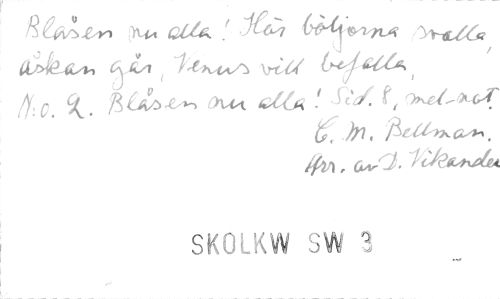 Blåsen nu alla! Hör böljorna svalla,
åskan går, Venus vill befalla,
N:o. 2. Blåsen nu alla! Sid. 8, mel-not.
C. M. Bellman.
Arr. av D. Vikander
SKOLKW SW 3